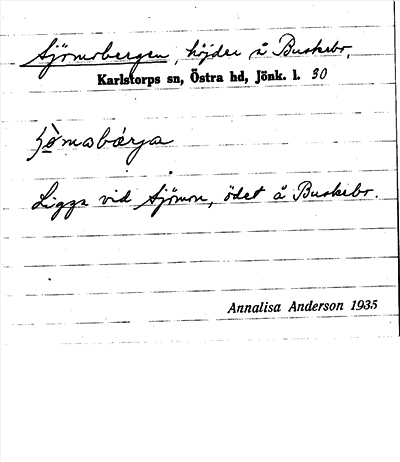 Sjömobergen, höjder å Buskebr.
Karlstorps sn, Östra hd, Jönk. l. 30
Ligga vid Sjömon, ödet å Buskebr.
Annalisa Anderson 1935